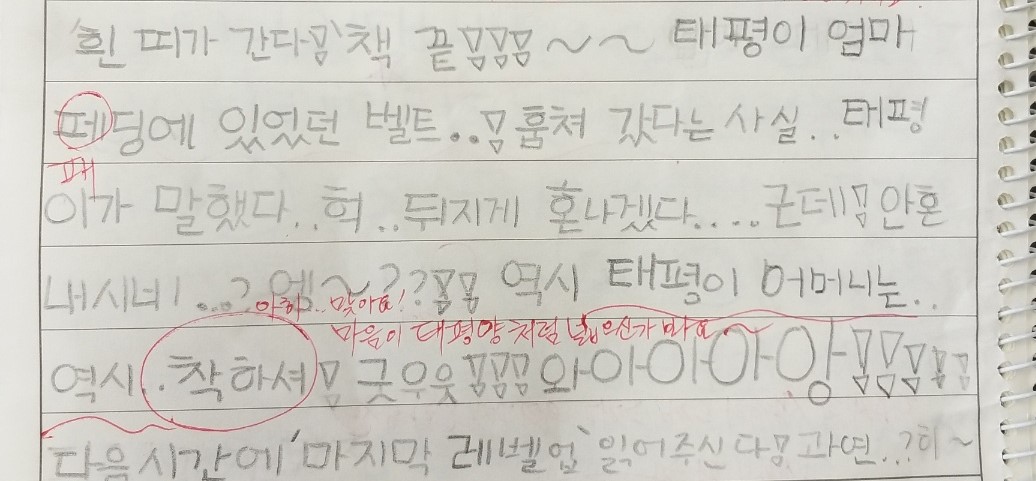 '흰 띠가 간다!' 책 끝!!! ~ ~ 태평이 엄마
페딩에 있었던 벨트..! 훔쳐 갔다는 사실..태평
패
이가 말했다..헉..뒤지게 혼나겠다....근데! 안혼
내시네!...? 엥~??!! 역시 태평이 어머니는..
아하.. 맞아요!
마음이 태평양 처럼 넓으신가 봐요~
역시. 착하셔! 굿우웃!!! 와아아아앙!!!!!
다음 시간에 '마지막 레벨업' 읽어주신다! 과연..?히~